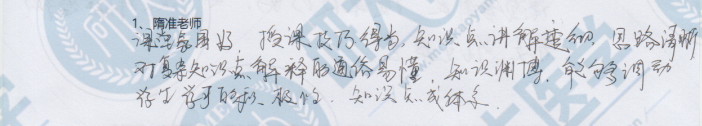 1、隋准老师
课堂氛围好，授课技巧得当，知识点讲解透细，思路清晰
对复杂知识点解释的通俗易懂，知识渊博，能够调动
学生学习的积极性，知识点成体系.